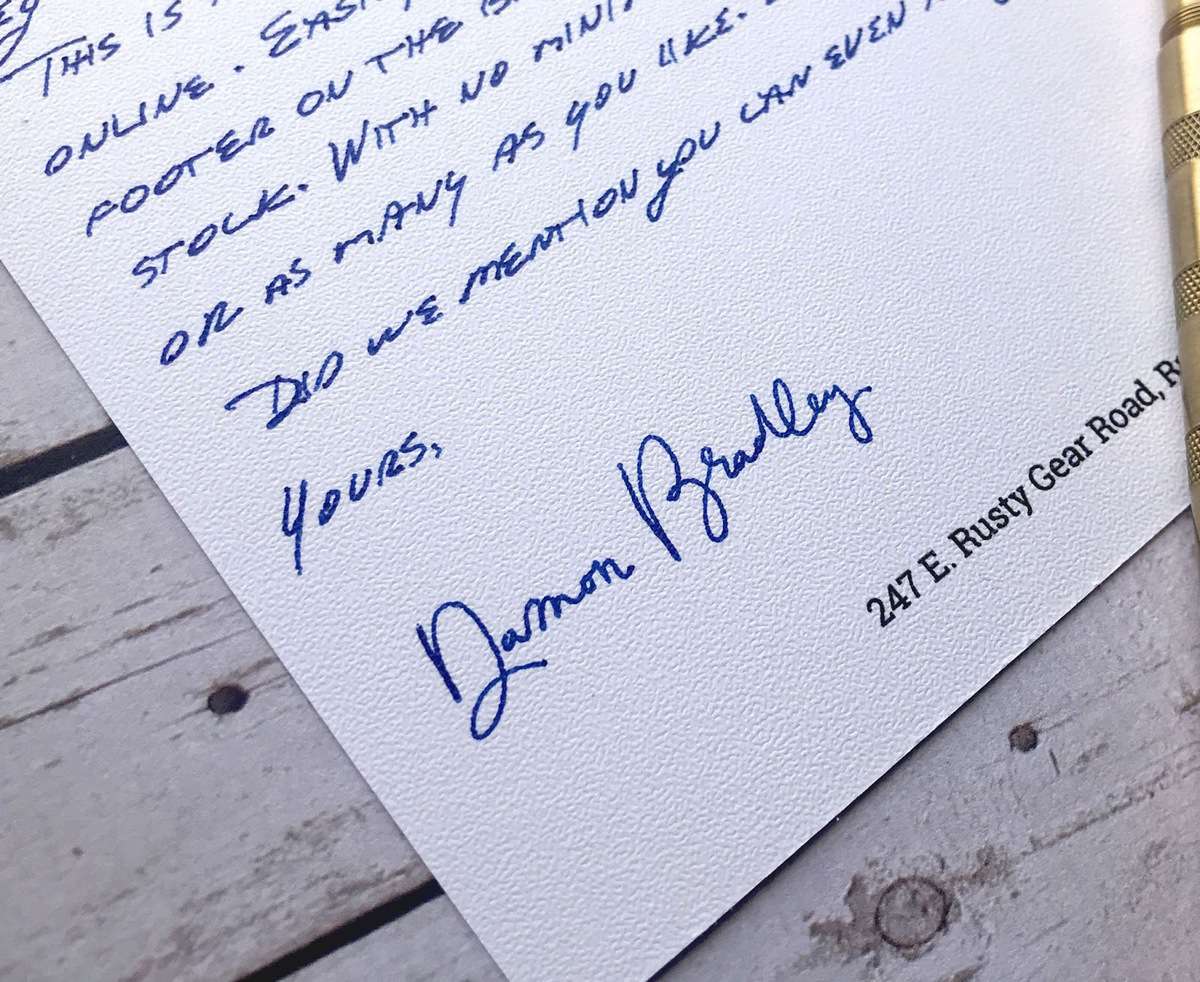 THIS IS
ONLINE. EASI
FOOTER ON THE
STOCK. WITH NO MINI
OR AS MANY AS YOU LIKE.
DID WE MENTION YOU CAN EVEN
YOURS,
Damon Bradley
247 E. Rusty Gear Road, R